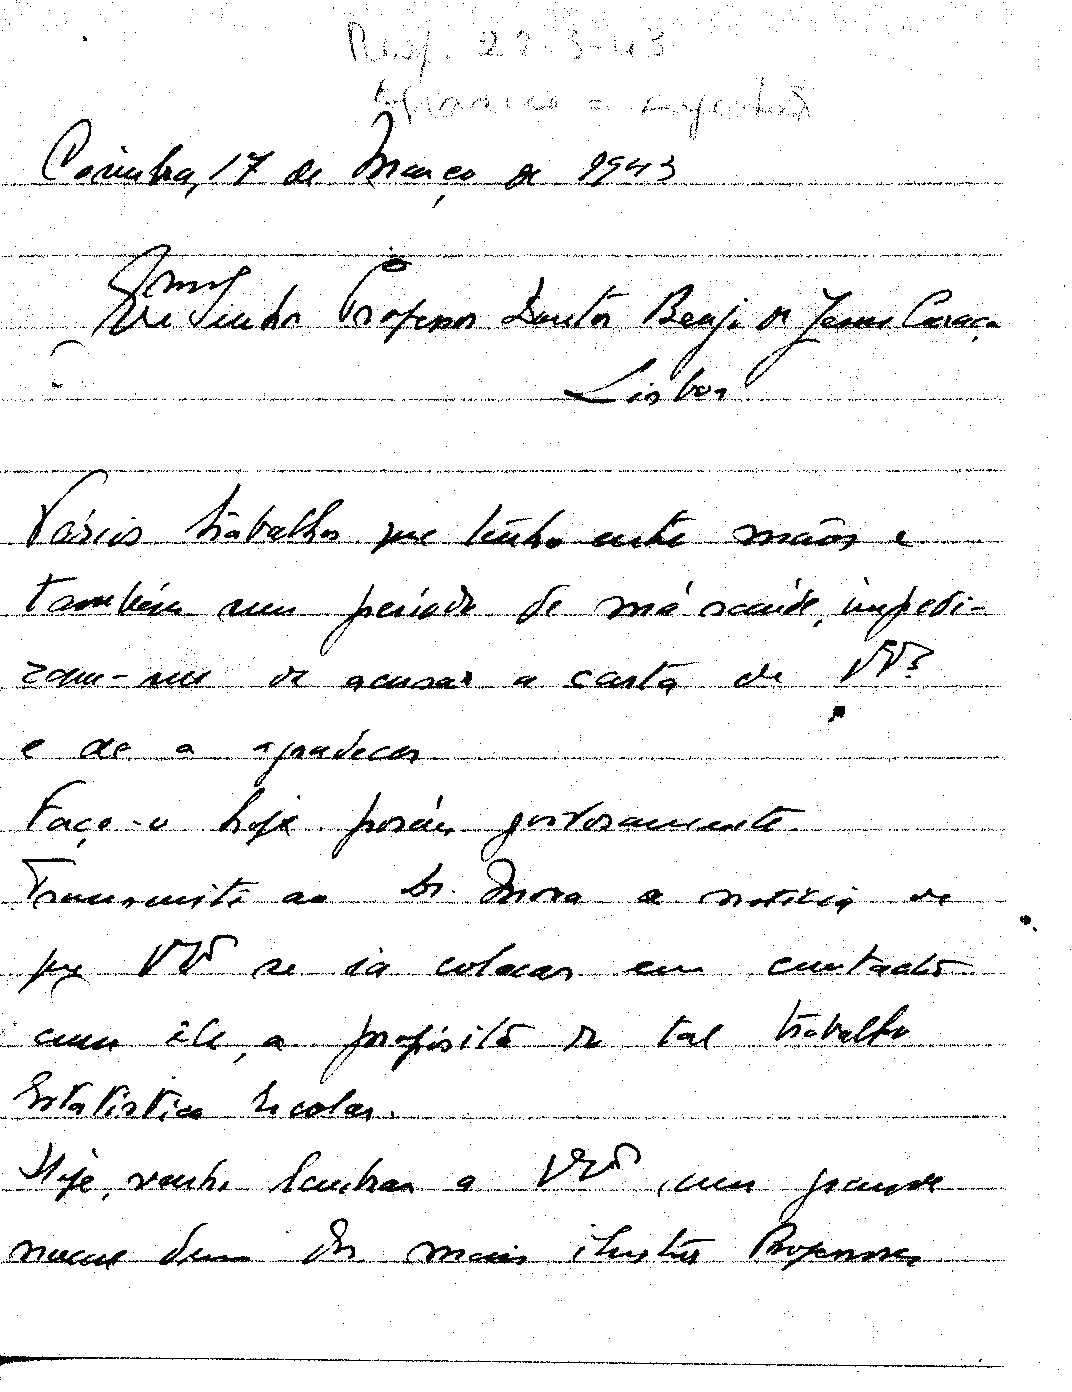 Resp. 29-3-43
Coimbra, 17 de Março de 1943
Exmo Senhor Professor Doutor Benj. de Jesus Caraça
Lisboa
Vários trabalhos que tenho entre mãos e
também um período de má saúde, impedi-
ram-me de acusar a carta de V
e de a agradecer.
Faço-o hoje porém, gostosamente.
Transmiti ao Dr. Mora a notícia de
que V se ia colocar em contacto
com êle, a propósito de tal trabalho
Estatística Escolar.
Hoje, venho lembrar a V, com grande
dum dos mais ilustres Professores